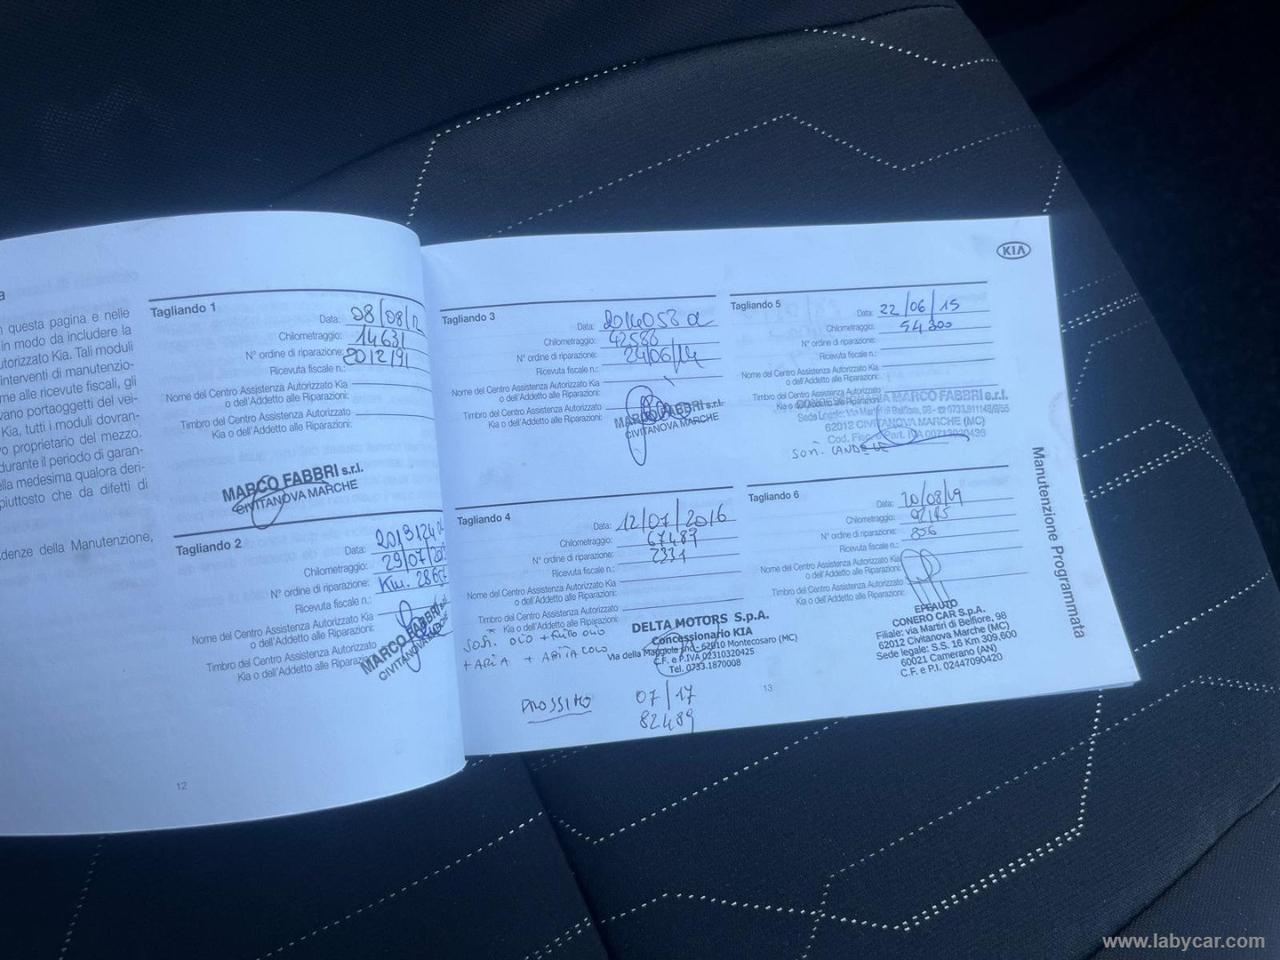 a
n questa pagina e nelle
in modo da includere la
utorizzato Kia. Tali moduli
interventi di manutenzio-
me alle ricevute fiscali, gli
vano portaoggetti del vei-
Kia, tutti i moduli dovran-
o proprietario del mezzo.
durante il periodo di garan-
ella medesima qualora deri-
piuttosto che da difetti di
denze della Manutenzione,
Tagliando 1
Data: 08/08/12
Chilometraggio: 14631
N° ordine di riparazione: 2012191
Ricevuta fiscale n.:
Nome del Centro Assistenza Autorizzato Kia
o dell'Addetto alle Riparazioni:
Timbro del Centro Assistenza Autorizzato
Kia o dell'Addetto alle Riparazioni:
MARCO FABBRI s.r.l.
CIVITANOVA MARCHE
Tagliando 2
Data:
Chilometraggio: 29/07/
N° ordine di riparazione: Km.
Ricevuta fiscale n.:
Nome del Centro Assistenza Autorizzato Kia
o dell'Addetto alle Riparazioni:
Timbro del Centro Assistenza Autorizzato
Kia o dell'Addetto alle Riparazioni:
MARCO FABBRI
CIVITANOVA
12
Tagliando 3
Data:
Chilometraggio: 42588
N° ordine di riparazione: 24/06/14
Ricevuta fiscale n.:
Nome del Centro Assistenza Autorizzato Kia
o dell'Addetto alle Riparazioni:
Timbro del Centro Assistenza Autorizzato
Kia o dell'Addetto alle Riparazioni:
MARCO FABBRI s.r.l.
CIVITANOVA MARCHE
Tagliando 4
Data: 12/07/2016
Chilometraggio: 67489
N° ordine di riparazione: 2331
Ricevuta fiscale n.:
Nome del Centro Assistenza Autorizzato Kia
o dell'Addetto alle Riparazioni:
Timbro del Centro Assistenza Autorizzato
Kia o dell'Addetto alle Riparazioni:
OLIO + OLIO
+ ARIA +
DELTA MOTORS S.p.A.
Concessionario KIA
Via della Maggiole snc - 62010 Montecosaro (MC)
C.F. e P.IVA 02310320425
Tel. 0733.1870008
PROSSIMO 07/17
82489
KIA
Tagliando 5
Data: 22/06/15
Chilometraggio: 54300
N° ordine di riparazione:
Ricevuta fiscale n.:
Nome del Centro Assistenza Autorizzato Kia
o dell'Addetto alle Riparazioni:
Timbro del Centro Assistenza Autorizzato
MARCO FABBRI s.r.l.
62012 CIVITANOVA MARCHE (MC)
Tagliando 6
Data: 20/08/19
Chilometraggio:
N° ordine di riparazione: 856
Ricevuta fiscale n.:
Nome del Centro Assistenza Autorizzato Kia
o dell'Addetto alle Riparazioni:
Timbro del Centro Assistenza Autorizzato
Kia o dell'Addetto alle Riparazioni:
EPEAUTO
CONERO CAR S.p.A.
Filiale: via Martiri di Belfiore, 98
62012 Civitanova Marche (MC)
Sede legale: S.S. 16 Km 309,600
60021 Camerano (AN)
C.F. e P.I. 02447090420
13
Manutenzione Programmata
www.labycar.com